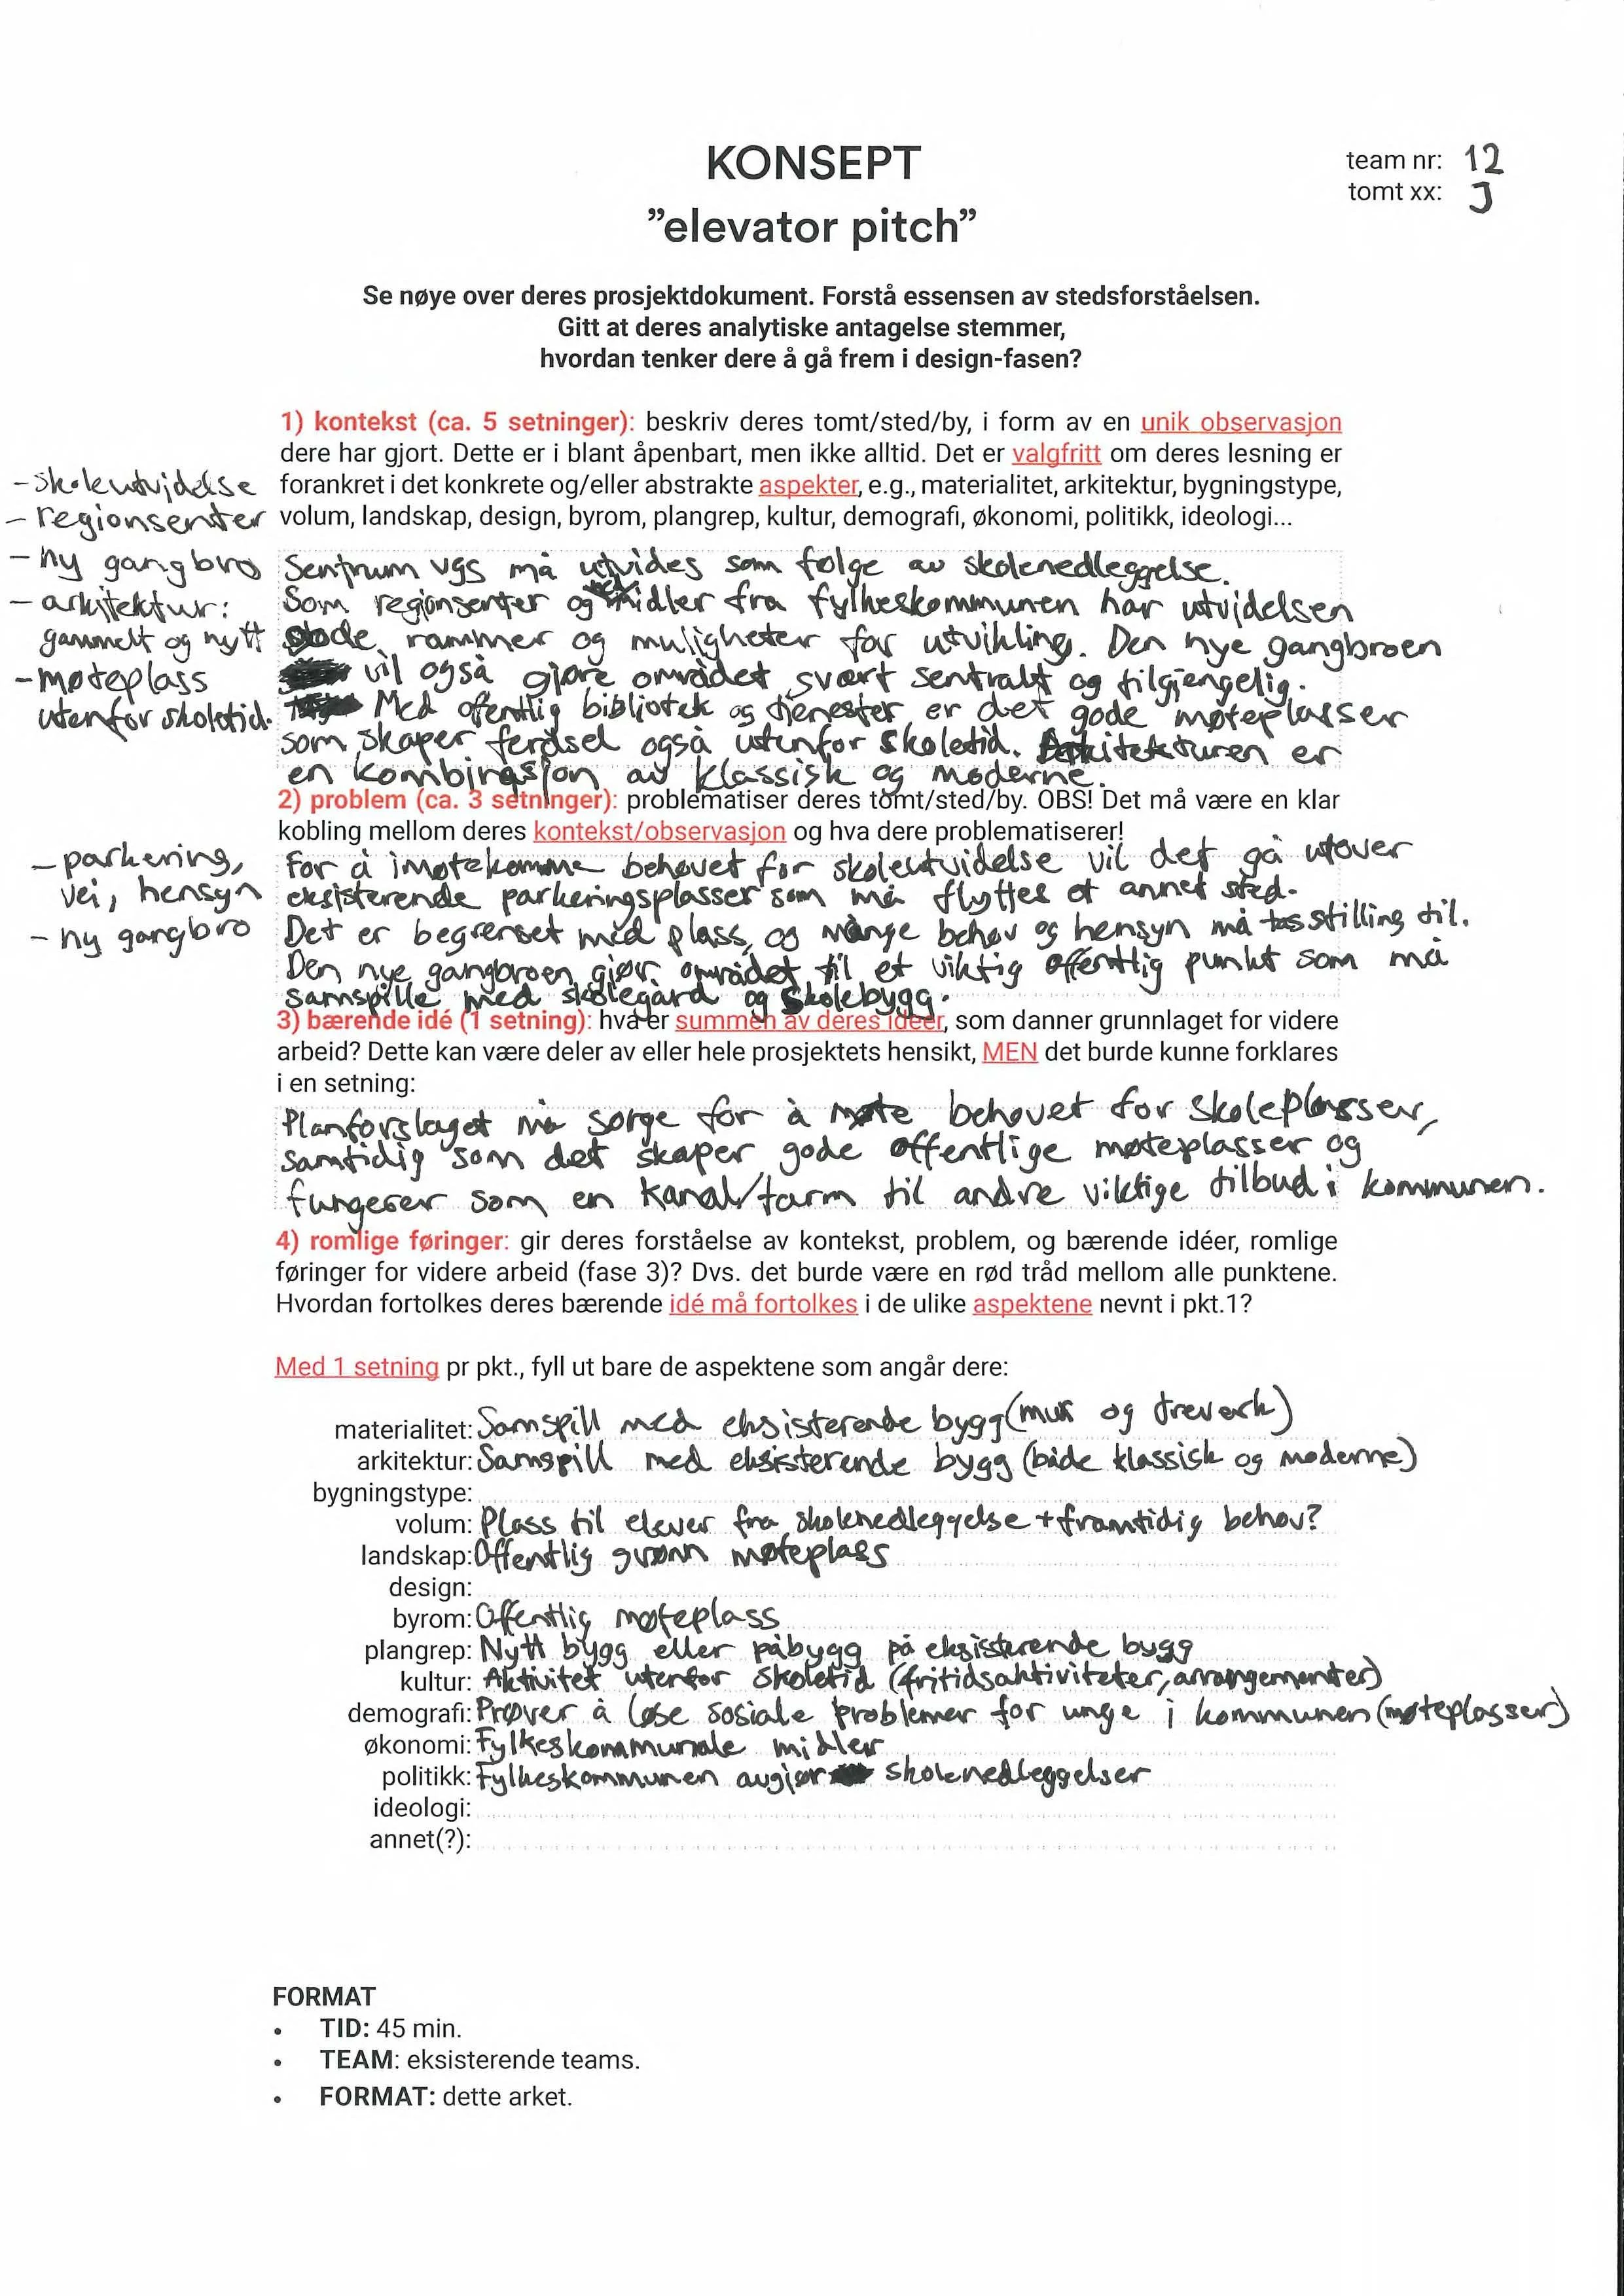 KONSEPT
"elevator pitch"
team nr: 12
tomt xx: J
Se nøye over deres prosjektdokument. Forstå essensen av stedsforståelsen.
Gitt at deres analytiske antagelse stemmer,
hvordan tenker dere å gå frem i design-fasen?
1) kontekst (ca. 5 setninger): beskriv deres tomt/sted/by, i form av en unik observasjon
dere har gjort. Dette er i blant åpenbart, men ikke alltid. Det er valgfritt om deres lesning er
forankret i det konkrete og/eller abstrakte aspekter, e.g., materialitet, arkitektur, bygningstype,
volum, landskap, design, byrom, plangrep, kultur, demografi, økonomi, politikk, ideologi...
- skoleutvidelse
- regionsenter
- ny gangbro
- arkitektur:
gammelt og nytt
- møteplass
utenfor skoletid.
Sentrum vgs må utvides som følge av skolenedleggelse.
Som regionsenter og med midler fra fylkeskommunen har utvidelsen
gode rammer og muligheter for utvikling. Den nye gangbroen
vil også gjøre området svært sentralt og tilgjengelig.
Med offentlig bibliotek og tjenester er det gode møteplasser
som skaper ferdsel også utenfor skoletid. Arkitekturen er
en kombinasjon av klassisk og moderne.
2) problem (ca. 3 setninger): problematiser deres tomt/sted/by. OBS! Det må være en klar
kobling mellom deres kontekst/observasjon og hva dere problematiserer!
- parkering,
vei, hensyn
- ny gangbro
For å imøtekomme behovet for skoleutvidelse vil det gå utover
eksisterende parkeringsplasser som må flyttes et annet sted.
Det er begrenset med plass, og mange behov og hensyn må tas stilling til.
Den nye gangbroen gjør området til et viktig offentlig punkt som må
samspille med skolegård og skolebygg.
3) bærende idé (1 setning): hva er summen av deres idéer, som danner grunnlaget for videre
arbeid? Dette kan være deler av eller hele prosjektets hensikt, MEN det burde kunne forklares
i en setning:
Planforslaget må sørge for å møte behovet for skoleplasser,
samtidig som det skaper gode offentlige møteplasser og
fungerer som en kanal/tarm til andre viktige tilbud i kommunen.
4) romlige føringer: gir deres forståelse av kontekst, problem, og bærende idéer, romlige
føringer for videre arbeid (fase 3)? Dvs. det burde være en rød tråd mellom alle punktene.
Hvordan fortolkes deres bærende idé må fortolkes i de ulike aspektene nevnt i pkt.1?
Med 1 setning pr pkt., fyll ut bare de aspektene som angår dere:
materialitet: Samspill med eksisterende bygg (mur og treverk)
arkitektur: Samspill med eksisterende bygg (både klassisk og moderne)
bygningstype:
volum: Plass til elever fra skolenedleggelse + framtidig behov?
landskap: Offentlig grønn møteplass
design:
byrom: Offentlig møteplass
plangrep: Nytt bygg eller påbygg på eksisterende bygg
kultur: Aktivitet utenfor skoletid (fritidsaktiviteter, arrangementer)
demografi: Prøver å løse sosiale problemer for unge i kommunen (møteplasser)
økonomi: Fylkeskommunale midler
politikk: Fylkeskommunen avgjør skolenedleggelser
ideologi:
annet(?):
FORMAT
• TID: 45 min.
• TEAM: eksisterende teams.
• FORMAT: dette arket.